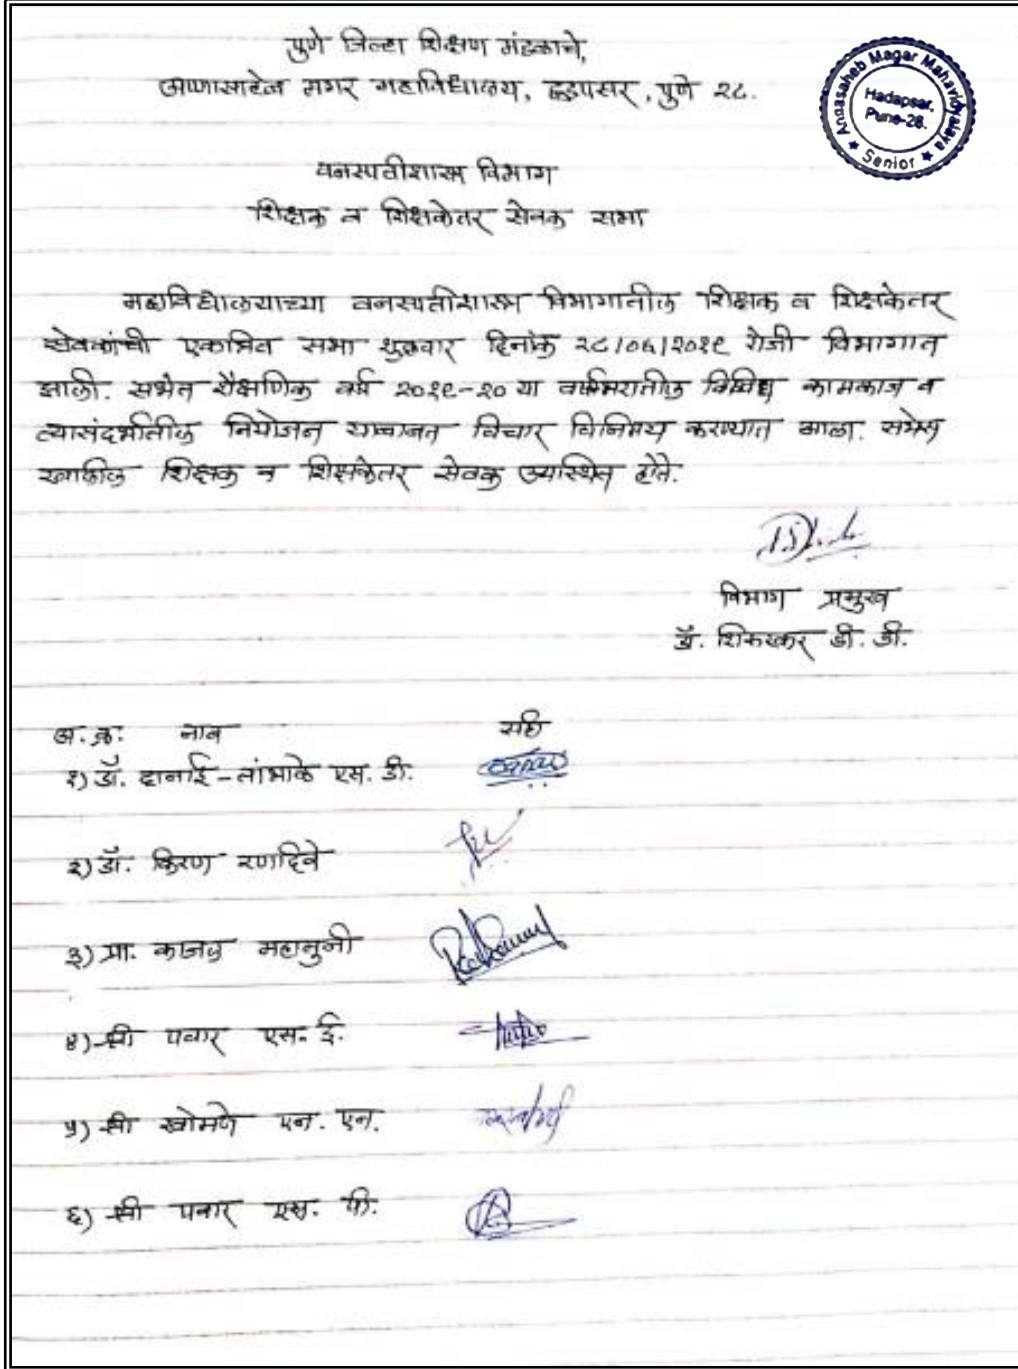 पुणे जिल्हा शिक्षण मंडळाचे,
अण्णासाहेब मगर महाविद्यालय, हडपसर, पुणे २८.
Annasaheb Magar Mahavidyalaya
Hadapsar,
Pune-28.
★ Senior ★
वनस्पतीशास्त्र विभाग
शिक्षक व शिक्षकेतर सेवक सभा
महाविद्यालयाच्या वनस्पतीशास्त्र विभागातील शिक्षक व शिक्षकेतर
सेवकांची एकत्रित सभा शुक्रवार दिनांक २८/०६/२०१९ रोजी विभागात
झाली. सभेत शैक्षणिक वर्ष २०१९-२० या वर्षभरातील विविध कामकाज व
त्यासंदर्भातील नियोजन याबाबत विचार विनिमय करण्यात आला. सभेस
खालील शिक्षक व शिक्षकेतर सेवक उपस्थित होते.
विभाग प्रमुख
डॉ. शिरुरकर डी. डी.
अ. क्र. नाव सही
१) डॉ. दानाई-तांभाळे एस. डी.
२) डॉ. किरण रणदिवे
३) प्रा. काजल महामुनी
४) श्री पवार एस. ई.
५) श्री खोमणे एन. एन.
६) श्री पवार एस. पी.